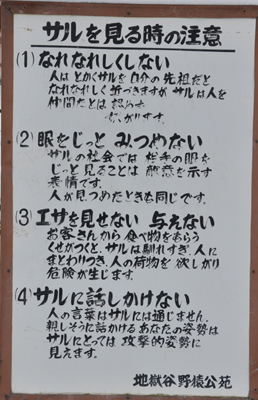 サルを見る時の注意
(1) なれなれしくしない
人は とかくサルを自分の先祖だと
なれなれしく 近づきますが サルは人を
仲間だとは 認め
がります。
(2) 眼をじっと みつめない
サルの社会では 相手の眼を
じっと 見ることは 敵意を示す
表情です。
人が見つめたときも同じです。
(3) エサを見せない 与えない
お客さんから 食べ物をもらう
くせがつくと、サルは馴れすぎ、人に
まとわりつき、人の荷物を 欲しがり
危険が生じます。
(4) サルに話しかけない
人の言葉はサルには通じません。
親しそうに話かける あなたの姿勢は
サルにとっては 攻撃的姿勢に
見えます。
地獄谷野猿公苑